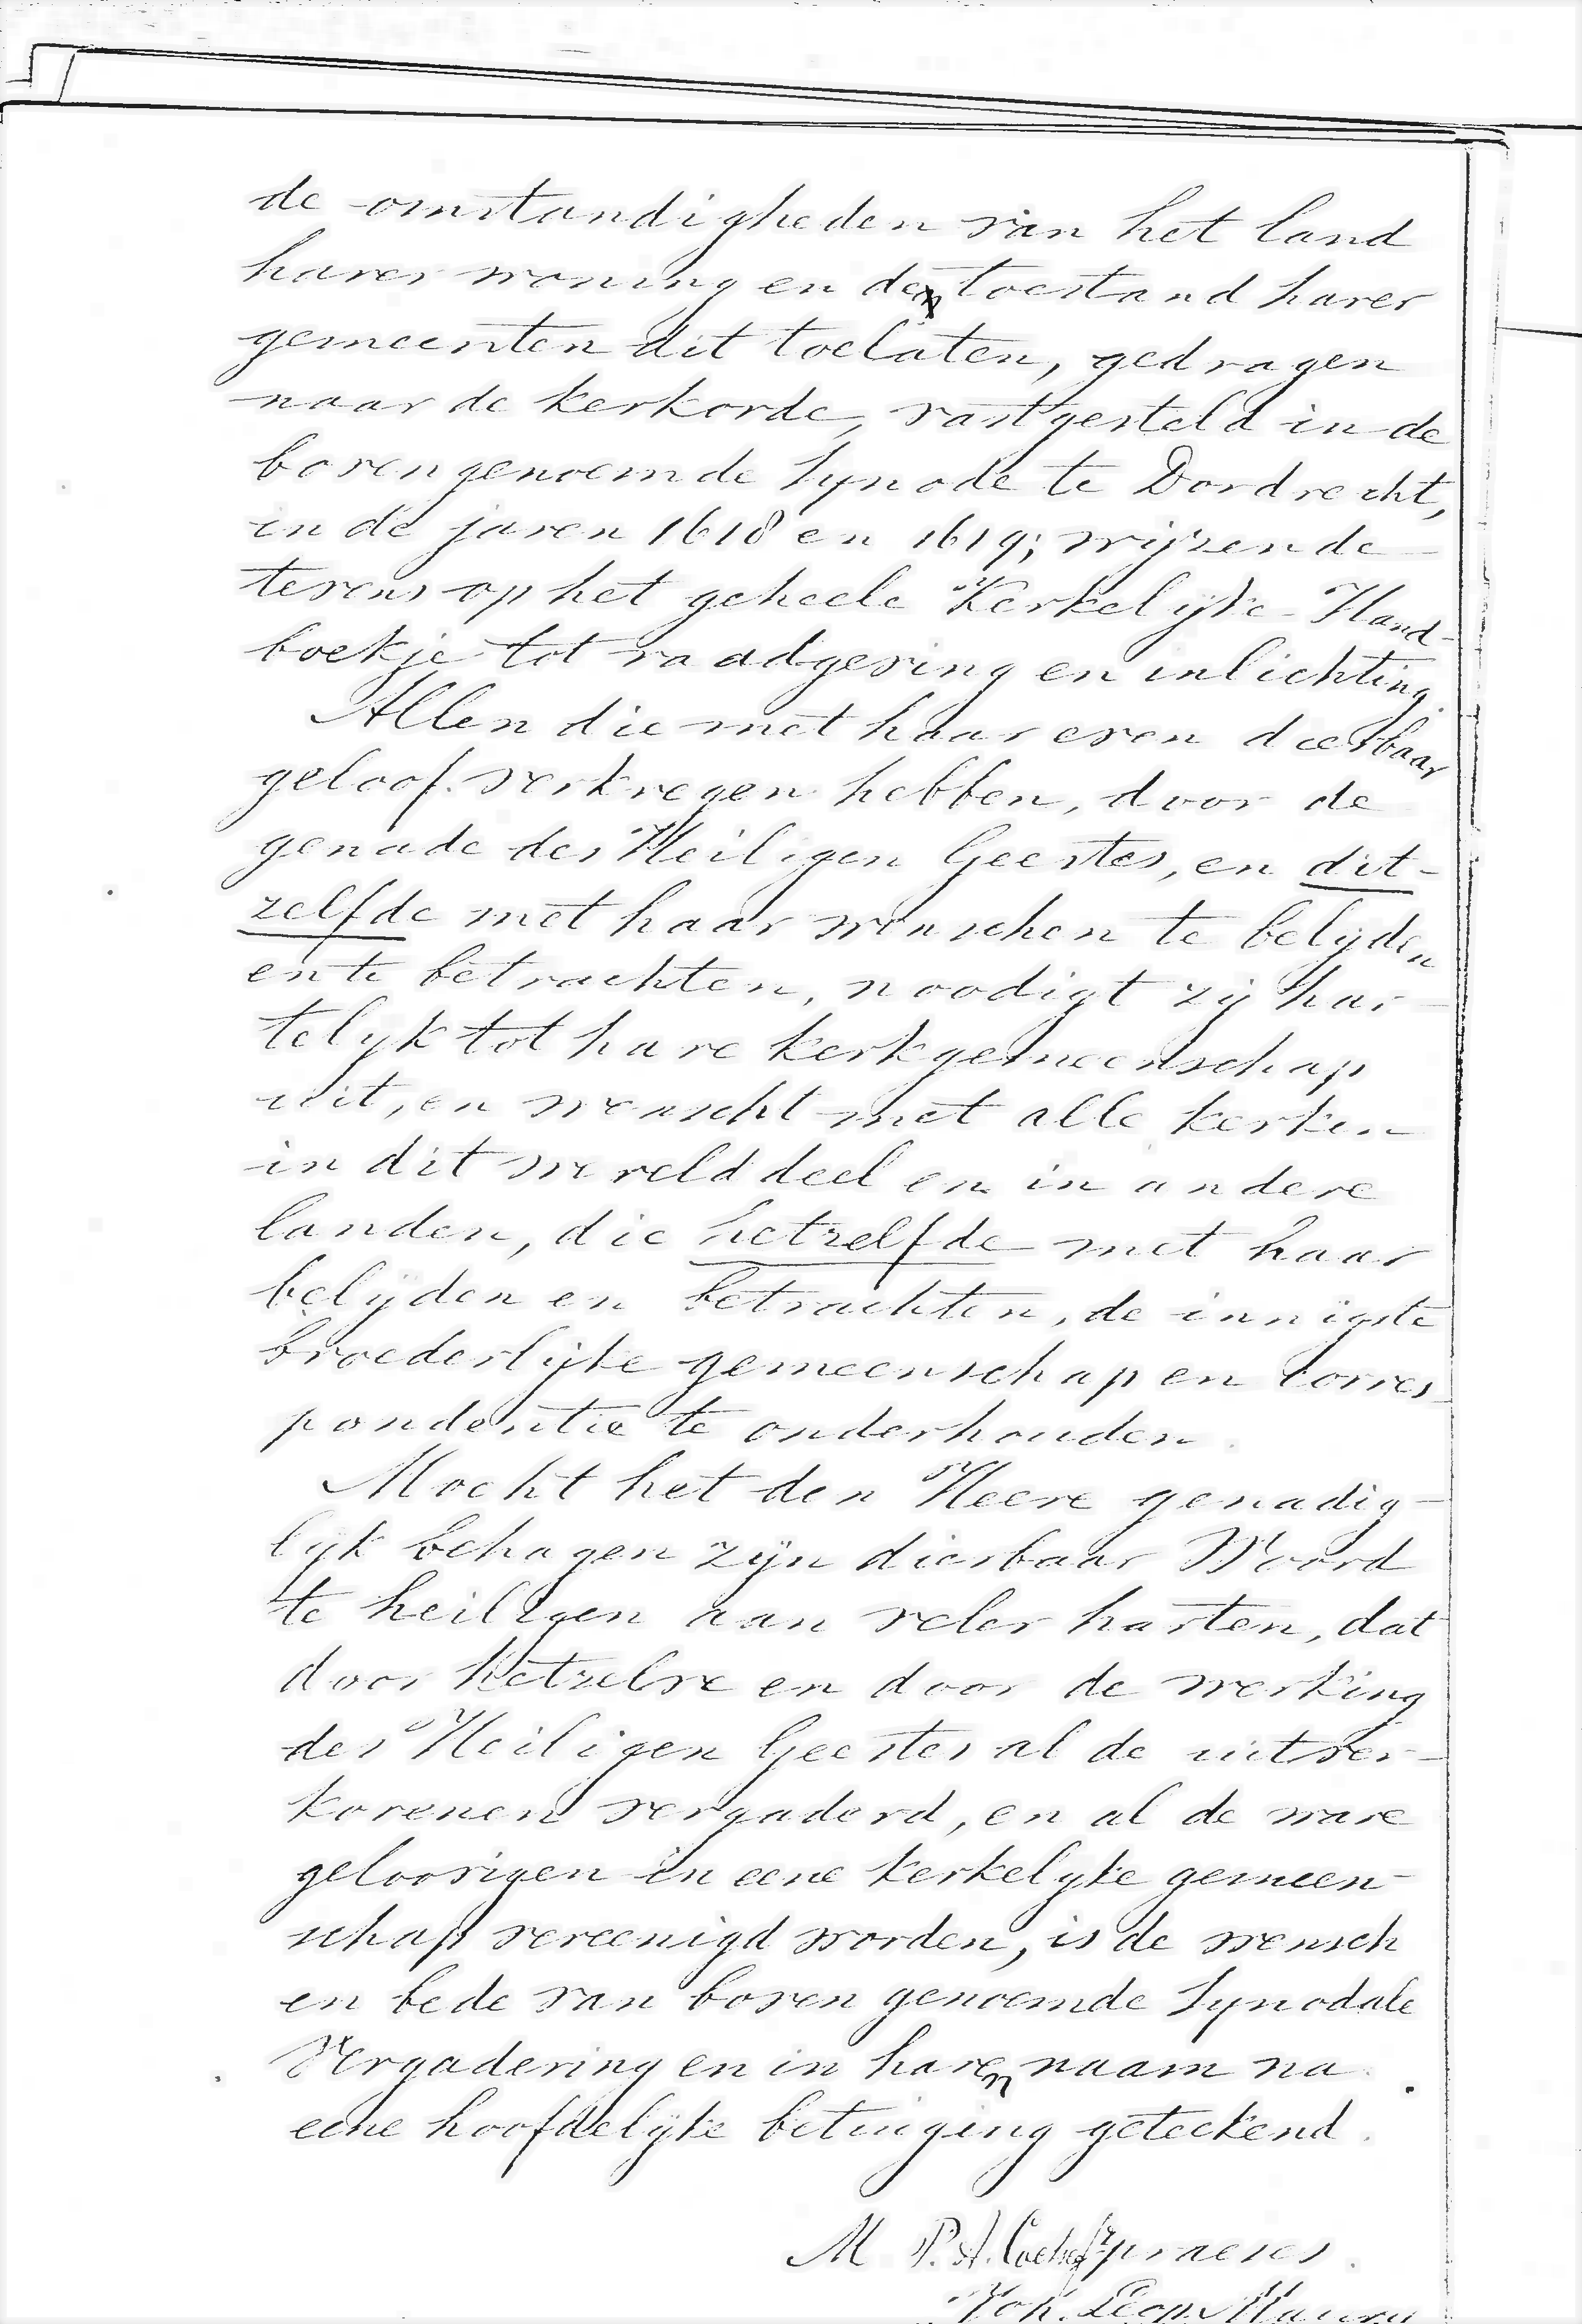 de omstandigheden van het land
harer woning en den toestand harer
gemeenten dit toelaten, gedragen
naar de kerkorde, vastgesteld in de
bovengenoemde Synode te Dordrecht,
in de jaren 1618 en 1619; wijzende
tevens op het geheele Kerkelijke-Hand-
boekje tot raadgeving en inlichting.
Allen die met haar even dierbaar
geloof verkregen hebben, door de
genade des Heiligen Geestes, en dit-
zelfde met haar wenschen te belijden
en te betrachten, noodigt zij har-
telijk tot hare kerkgemeenschap
uit, en wenscht met alle kerken
in dit werelddeel en in andere
landen, die hetzelfde met haar
belijden en betrachten, de innigste
broederlijke gemeenschap en corres-
pondentie te onderhouden.
Mocht het den Heere genadig-
lijk behagen zijn dierbaar Woord
te heiligen aan veler harten, dat
door hetzelve en door de werking
des Heiligen Geestes al de uitver-
korenen vergaderd, en al de ware
geloovigen in eene kerkelijke gemeen-
schap vereenigd worden, is de wensch
en bede van boven genoemde Synodale
Vergadering en in haren naam na
eene hoofdelijke betuiging geteekend.
M P. A. praeses.
Joh.